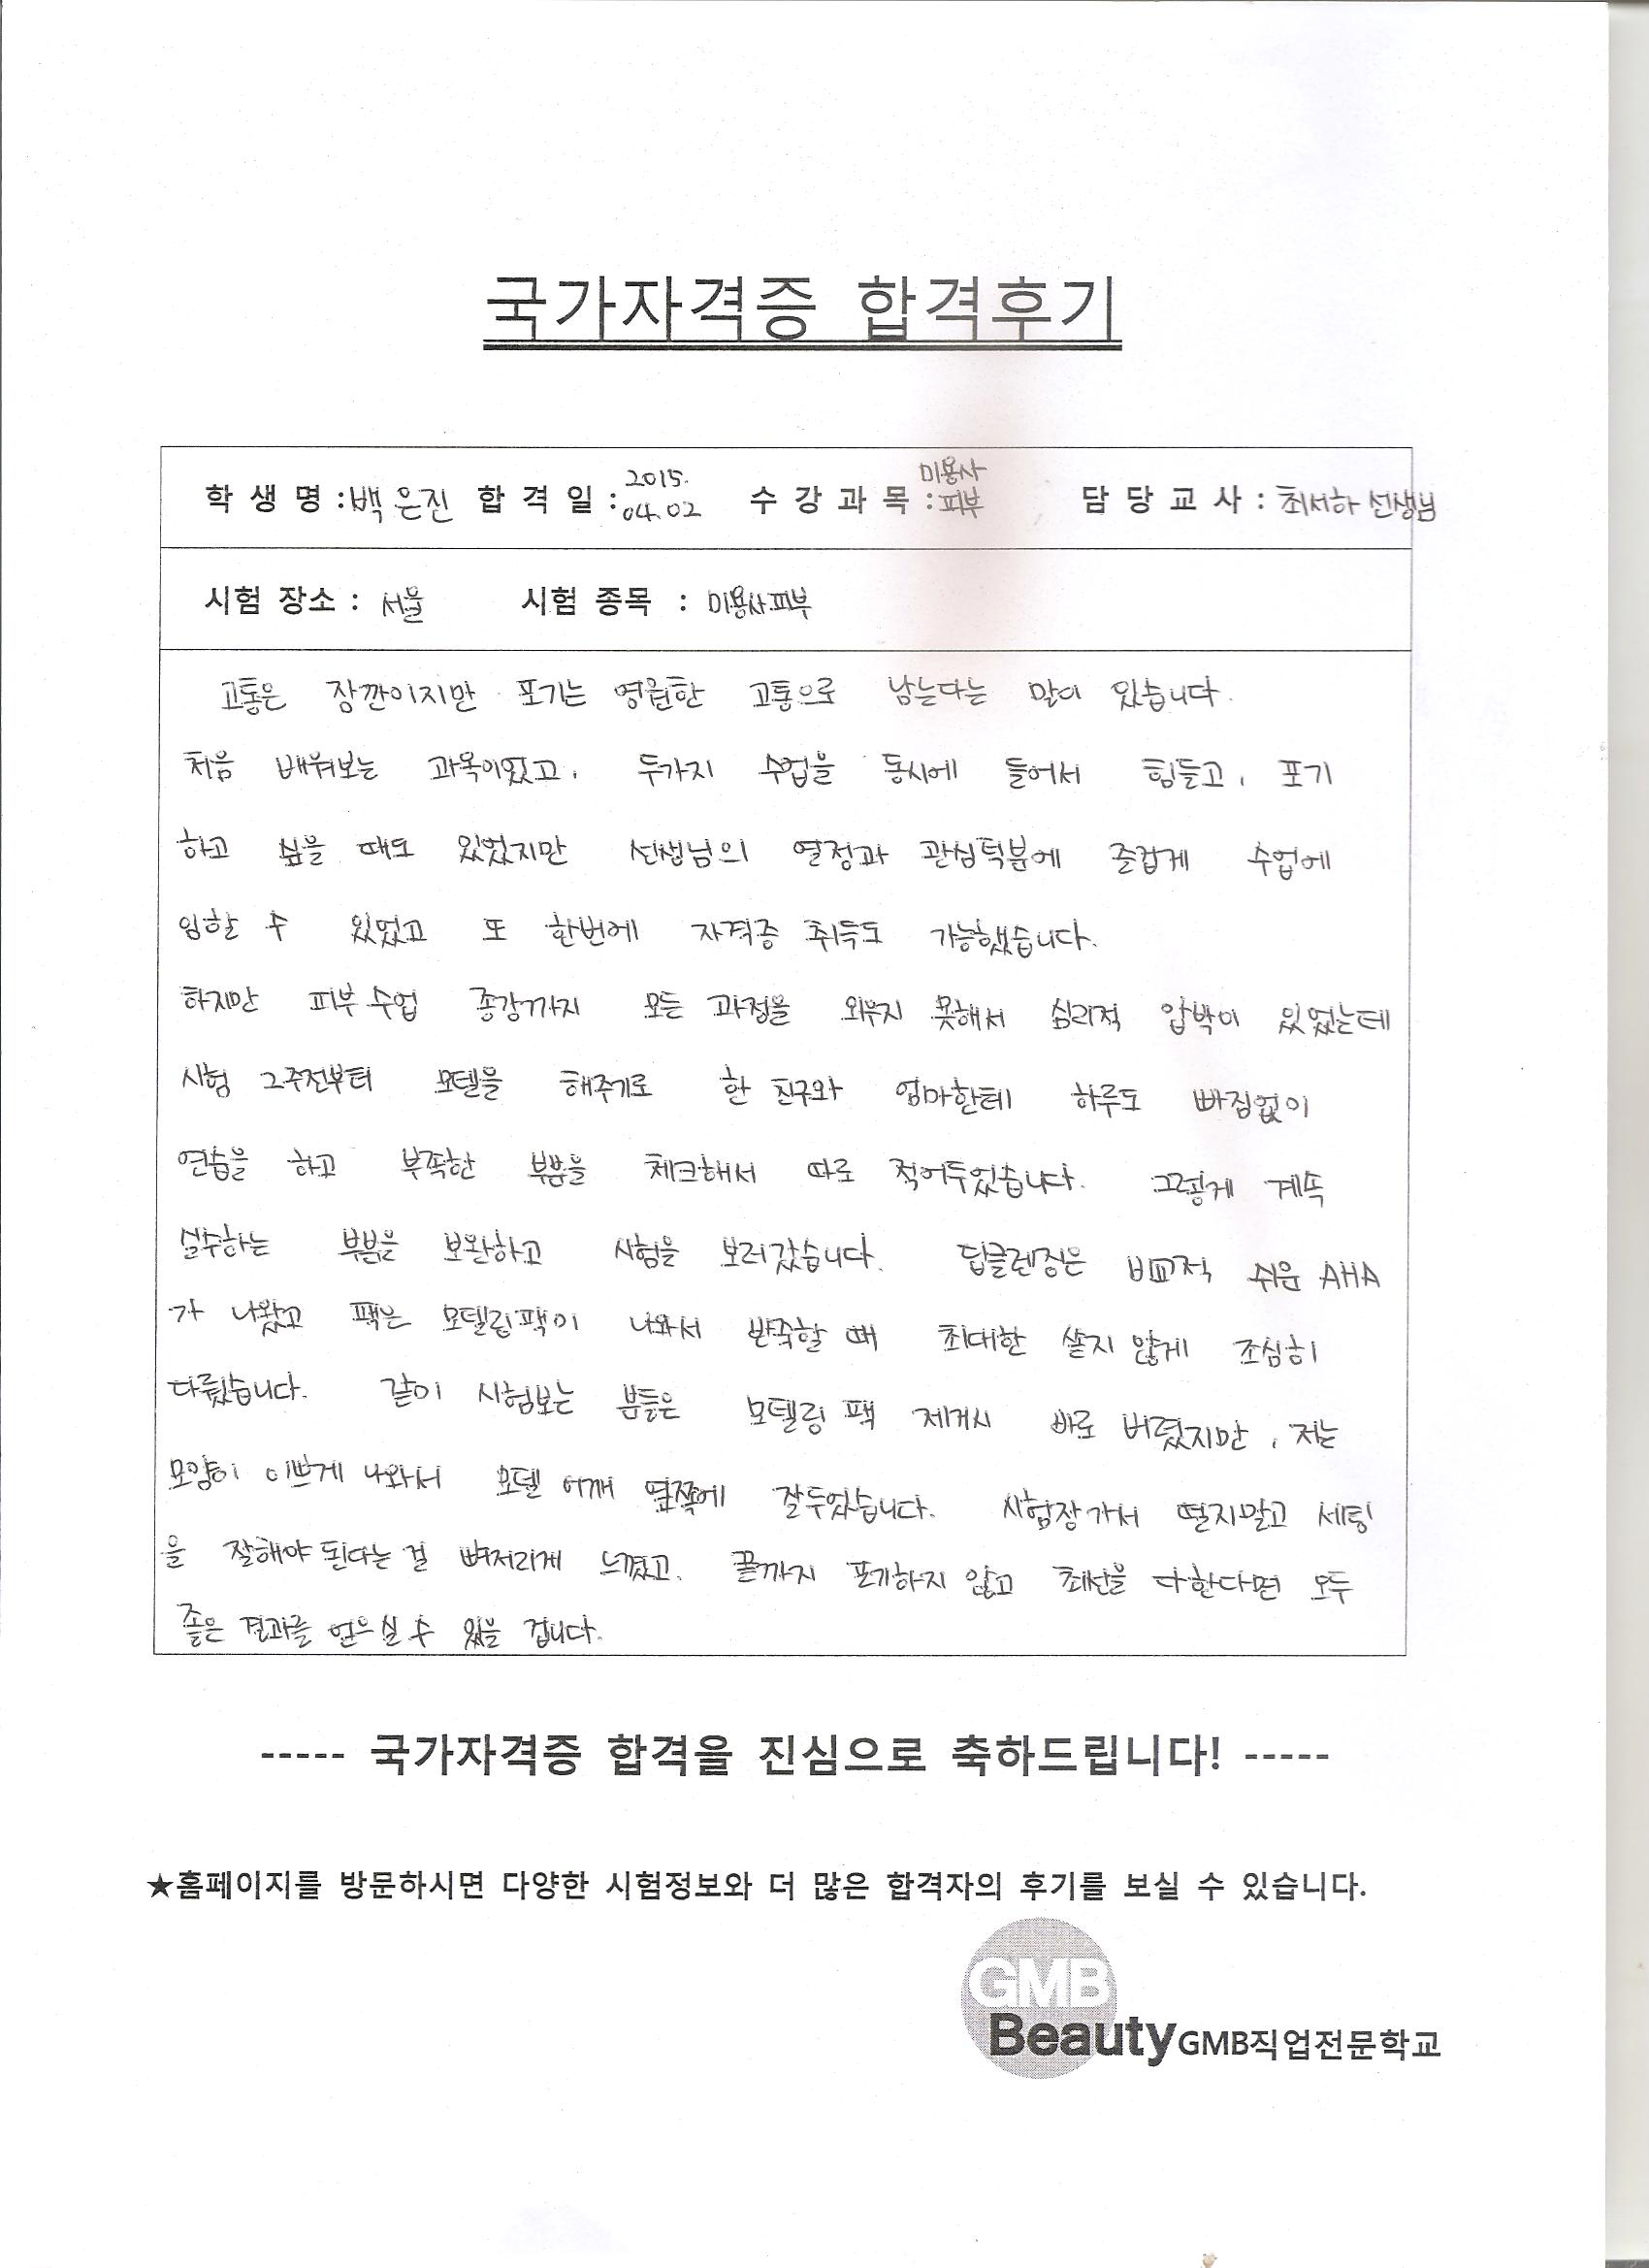 국가자격증 합격후기
학 생 명 : 백은진 합 격 일 : 2015. 04.02 수 강 과 목 : 미용사 피부 담 당 교 사 : 최서하 선생님
시험 장소 : 서울 시험 종목 : 미용사피부
고통은 잠깐이지만 포기는 영원한 고통으로 남는다는 말이 있습니다.
처음 배워보는 과목이었고, 두가지 수업을 동시에 들어서 힘들고, 포기
하고 싶을 때도 있었지만 선생님의 열정과 관심턱분에 즐겁게 수업에
임할 수 있었고 또 한번에 자격증 취득도 가능했습니다.
하지만 피부 수업 종강까지 모든 과정을 외우지 못해서 심리적 압박이 있었는데
시험 2주전부터 모델을 해주기로 한 친구와 엄마한테 하루도 빠짐없이
연습을 하고 부족한 부분을 체크해서 따로 적어두었습니다. 그렇게 계속
실수하는 부분을 보완하고 시험을 보러갔습니다. 딥클렌징은 비교적 쉬운 AHA
가 나왔고 팩은 모델링팩이 나와서 반죽할 때 최대한 쏟지 않게 조심히
다뤘습니다. 같이 시험보는 분들은 모델링 팩 제거시 바로 버렸지만, 저는
모양이 이쁘게 나와서 모델 어깨 옆쪽에 잘두었습니다. 시험장가서 떨지말고 세팅
을 잘해야 된다는 걸 뼈저리게 느꼈고, 끝까지 포기하지 않고 최선을 다한다면 모두
좋은 결과를 얻으실 수 있을 겁니다.
----- 국가자격증 합격을 진심으로 축하드립니다! -----
★홈페이지를 방문하시면 다양한 시험정보와 더 많은 합격자의 후기를 보실 수 있습니다.
GMB
Beauty GMB직업전문학교